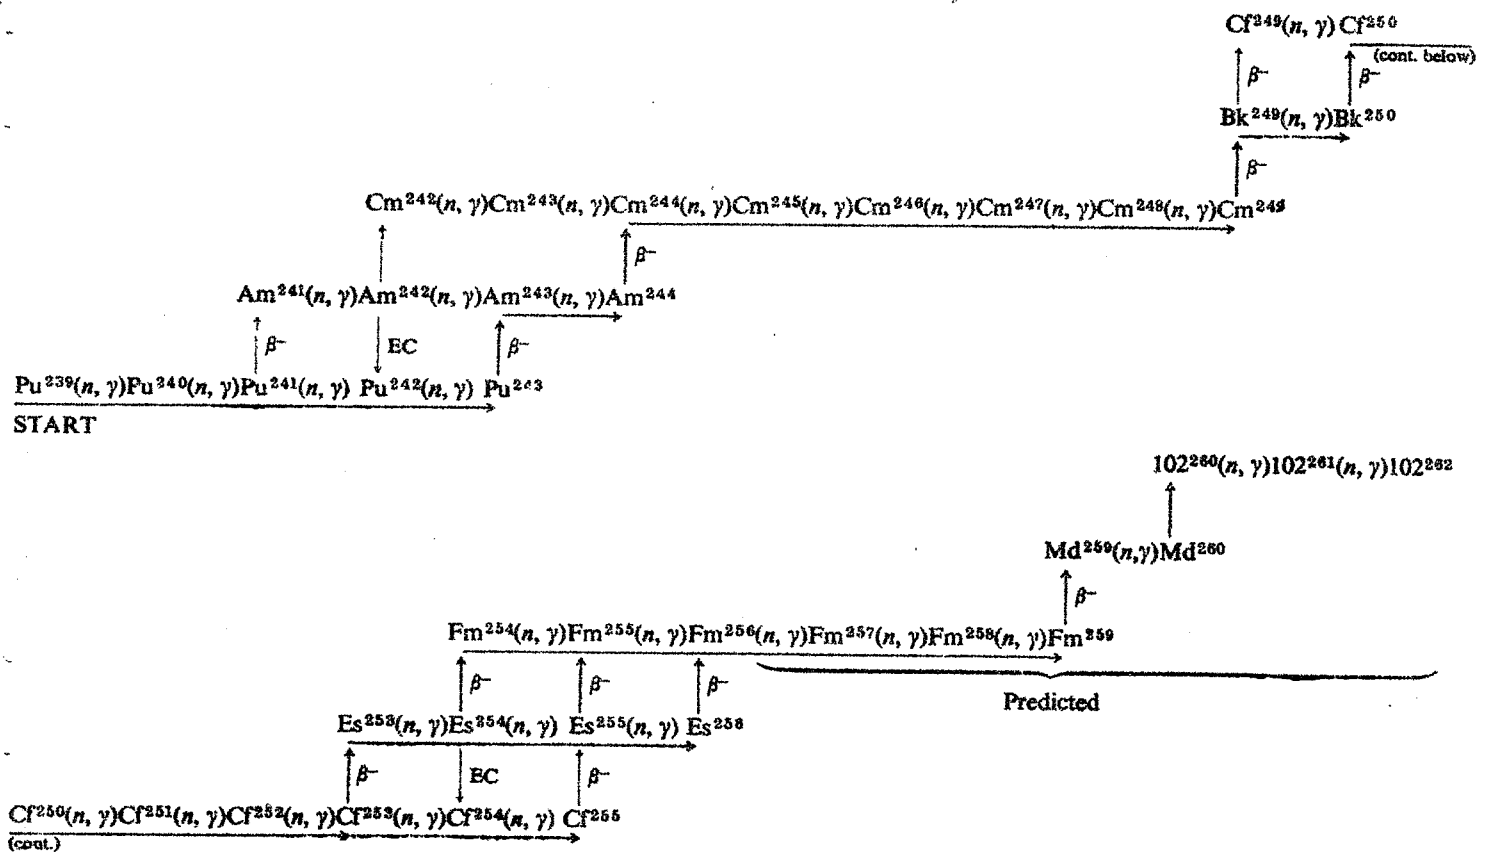 Cf²⁴⁹(n, γ) Cf²⁵⁰
(cont. below)
β⁻ β⁻
Bk²⁴⁹(n, γ)Bk²⁵⁰
β⁻
Cm²⁴²(n, γ)Cm²⁴³(n, γ)Cm²⁴⁴(n, γ)Cm²⁴⁵(n, γ)Cm²⁴⁶(n, γ)Cm²⁴⁷(n, γ)Cm²⁴⁸(n, γ)Cm²⁴⁹
β⁻
Am²⁴¹(n, γ)Am²⁴²(n, γ)Am²⁴³(n, γ)Am²⁴⁴
β⁻ EC β⁻
Pu²³⁹(n, γ)Pu²⁴⁰(n, γ)Pu²⁴¹(n, γ) Pu²⁴²(n, γ) Pu²⁴³
START
102²⁶⁰(n, γ)102²⁶¹(n, γ)102²⁶²
Md²⁵⁹(n,γ)Md²⁶⁰
β⁻
Fm²⁵⁴(n, γ)Fm²⁵⁵(n, γ)Fm²⁵⁶(n, γ)Fm²⁵⁷(n, γ)Fm²⁵⁸(n, γ)Fm²⁵⁹
β⁻ β⁻ β⁻
Predicted
Es²⁵³(n, γ)Es²⁵⁴(n, γ) Es²⁵⁵(n, γ) Es²⁵⁶
β⁻ EC β⁻
Cf²⁵⁰(n, γ)Cf²⁵¹(n, γ)Cf²⁵²(n, γ)Cf²⁵³(n, γ)Cf²⁵⁴(n, γ) Cf²⁵⁵
(cont.)